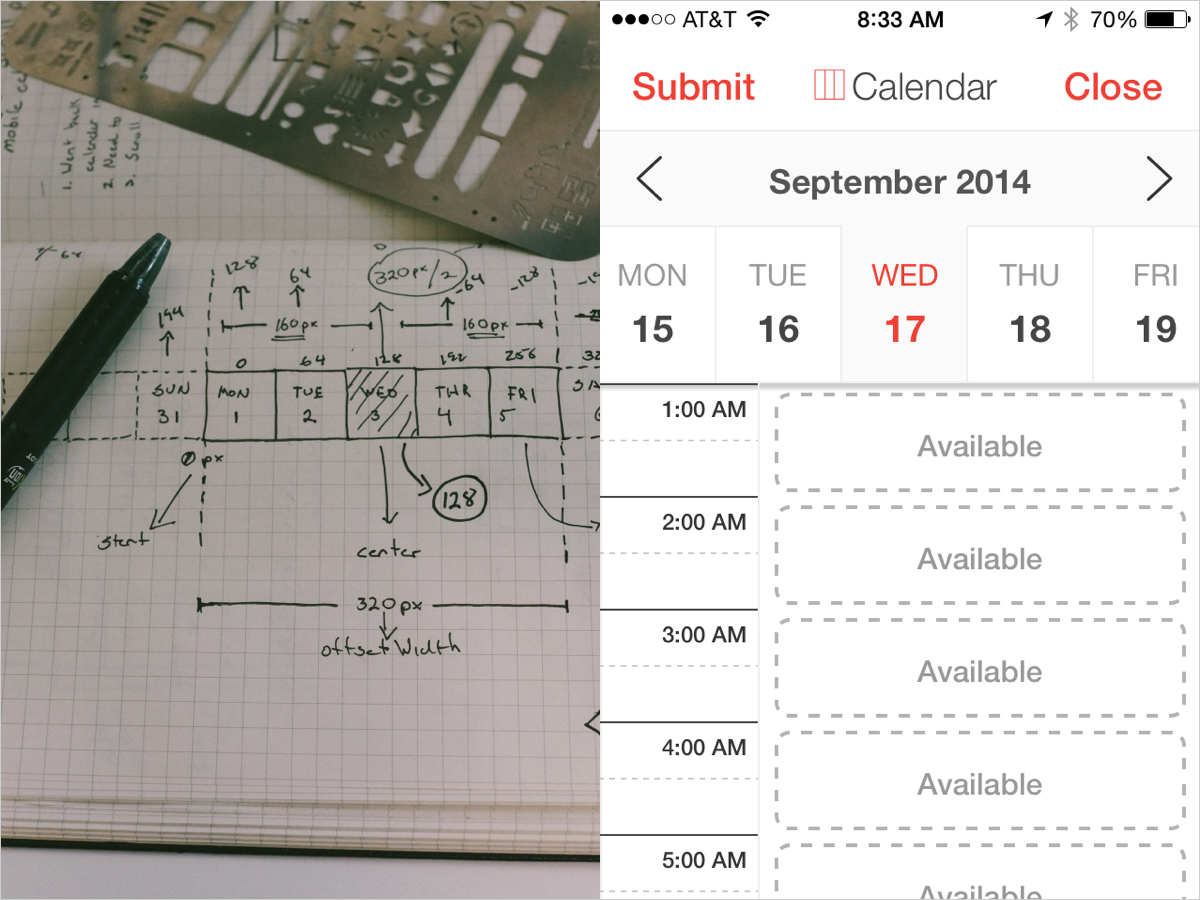 mobile
1. Went back
calendar
2. Need to
3. Scroll
128
64
320px/2
-64
-128
194
160px
160px
0
64
128
192
256
SUN
MON
TUE
WED
THR
FRI
31
1
2
3
4
5
0 px
128
start
center
320px
offsetWidth
AT&T
8:33 AM
70%
Submit
Calendar
Close
September 2014
MON
TUE
WED
THU
FRI
15
16
17
18
19
1:00 AM
Available
2:00 AM
Available
3:00 AM
Available
4:00 AM
Available
5:00 AM
Available